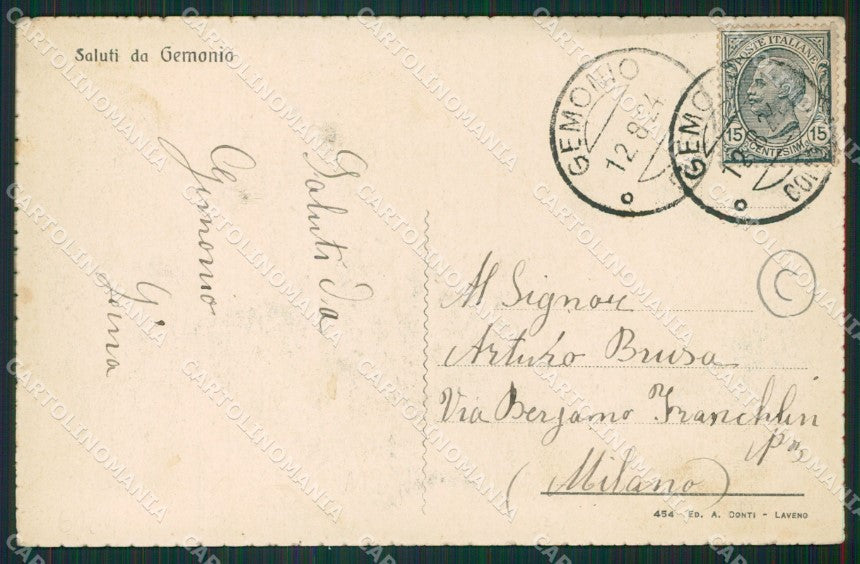 Saluti da Gemonio
Saluti da
Gemonio
GEMONIO
12.8.24
GEMO
12
POSTE ITALIANE
15 15
CENTESIMI
C
Al Signor
Arturo Brusa
Via Bergamo
(Milano)
454 - ED. A. CONTI - LAVENO
CARTOLINOMANIA